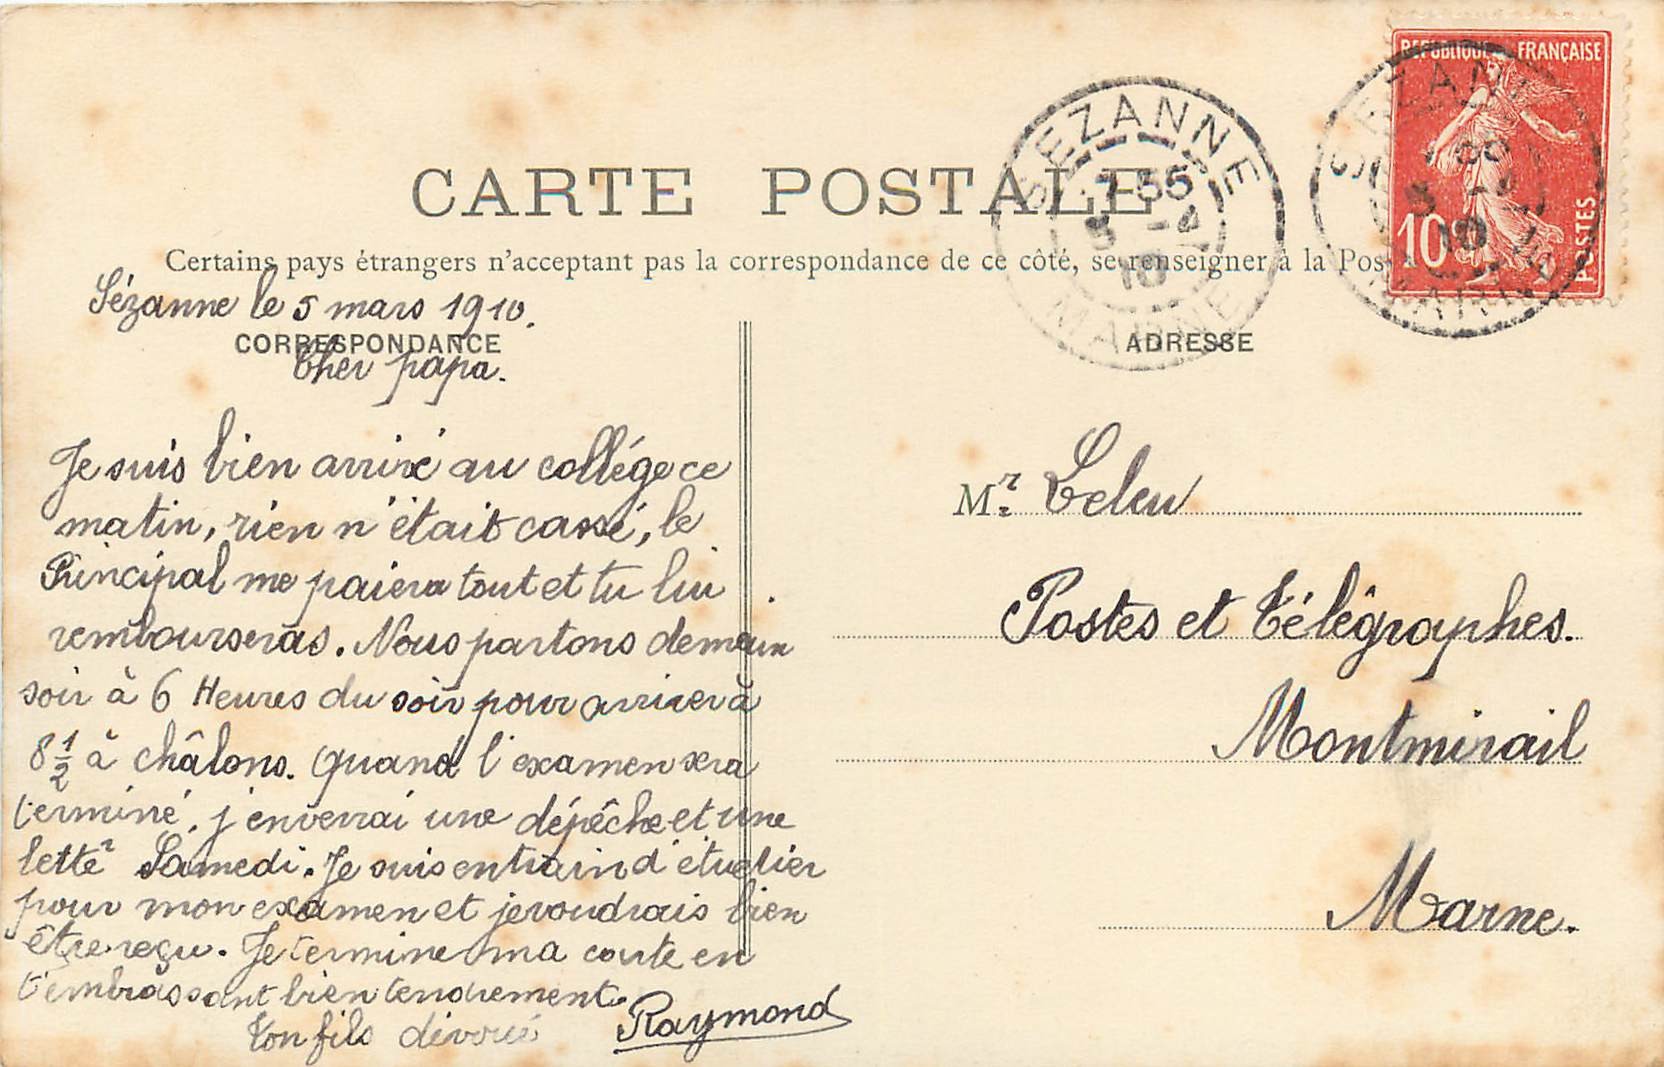 RÉPUBLIQUE FRANÇAISE
10
POSTES
SEZANNE
7 35
5 -4
10
MARNE
CARTE POSTALE
Certains pays étrangers n'acceptant pas la correspondance de ce côté, se renseigner à la Pos
Sézanne le 5 mars 1910.
CORRESPONDANCE
ADRESSE
Cher papa.
Je suis bien arrivé au collége ce
matin, rien n'était cassé, le
Principal me paiera tout et tu lui
rembourseras. Nous partons demain
soir à 6 Heures du soir pour arriver à
8 1/2 à châlons. Quand l'examen sera
terminé, j'enverrai une dépêche et une
lettre Samedi. Je suis entrain d'étudier
pour mon examen et je voudrais bien
être reçu. Je termine ma carte en
t'embrassant bien tendrement.
Ton fils dévoué Raymond
Mr. Leleu
Postes et Télégraphes.
Montmirail
Marne.